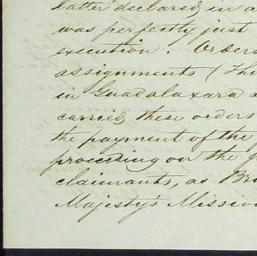 latter declared, in a
was perfectly just
execution. Orders
assignments (Tho
in Guadalaxara a
carried these orders
the payment of the
proceeding on the p
claimants, as Bri
Majesty's Mission